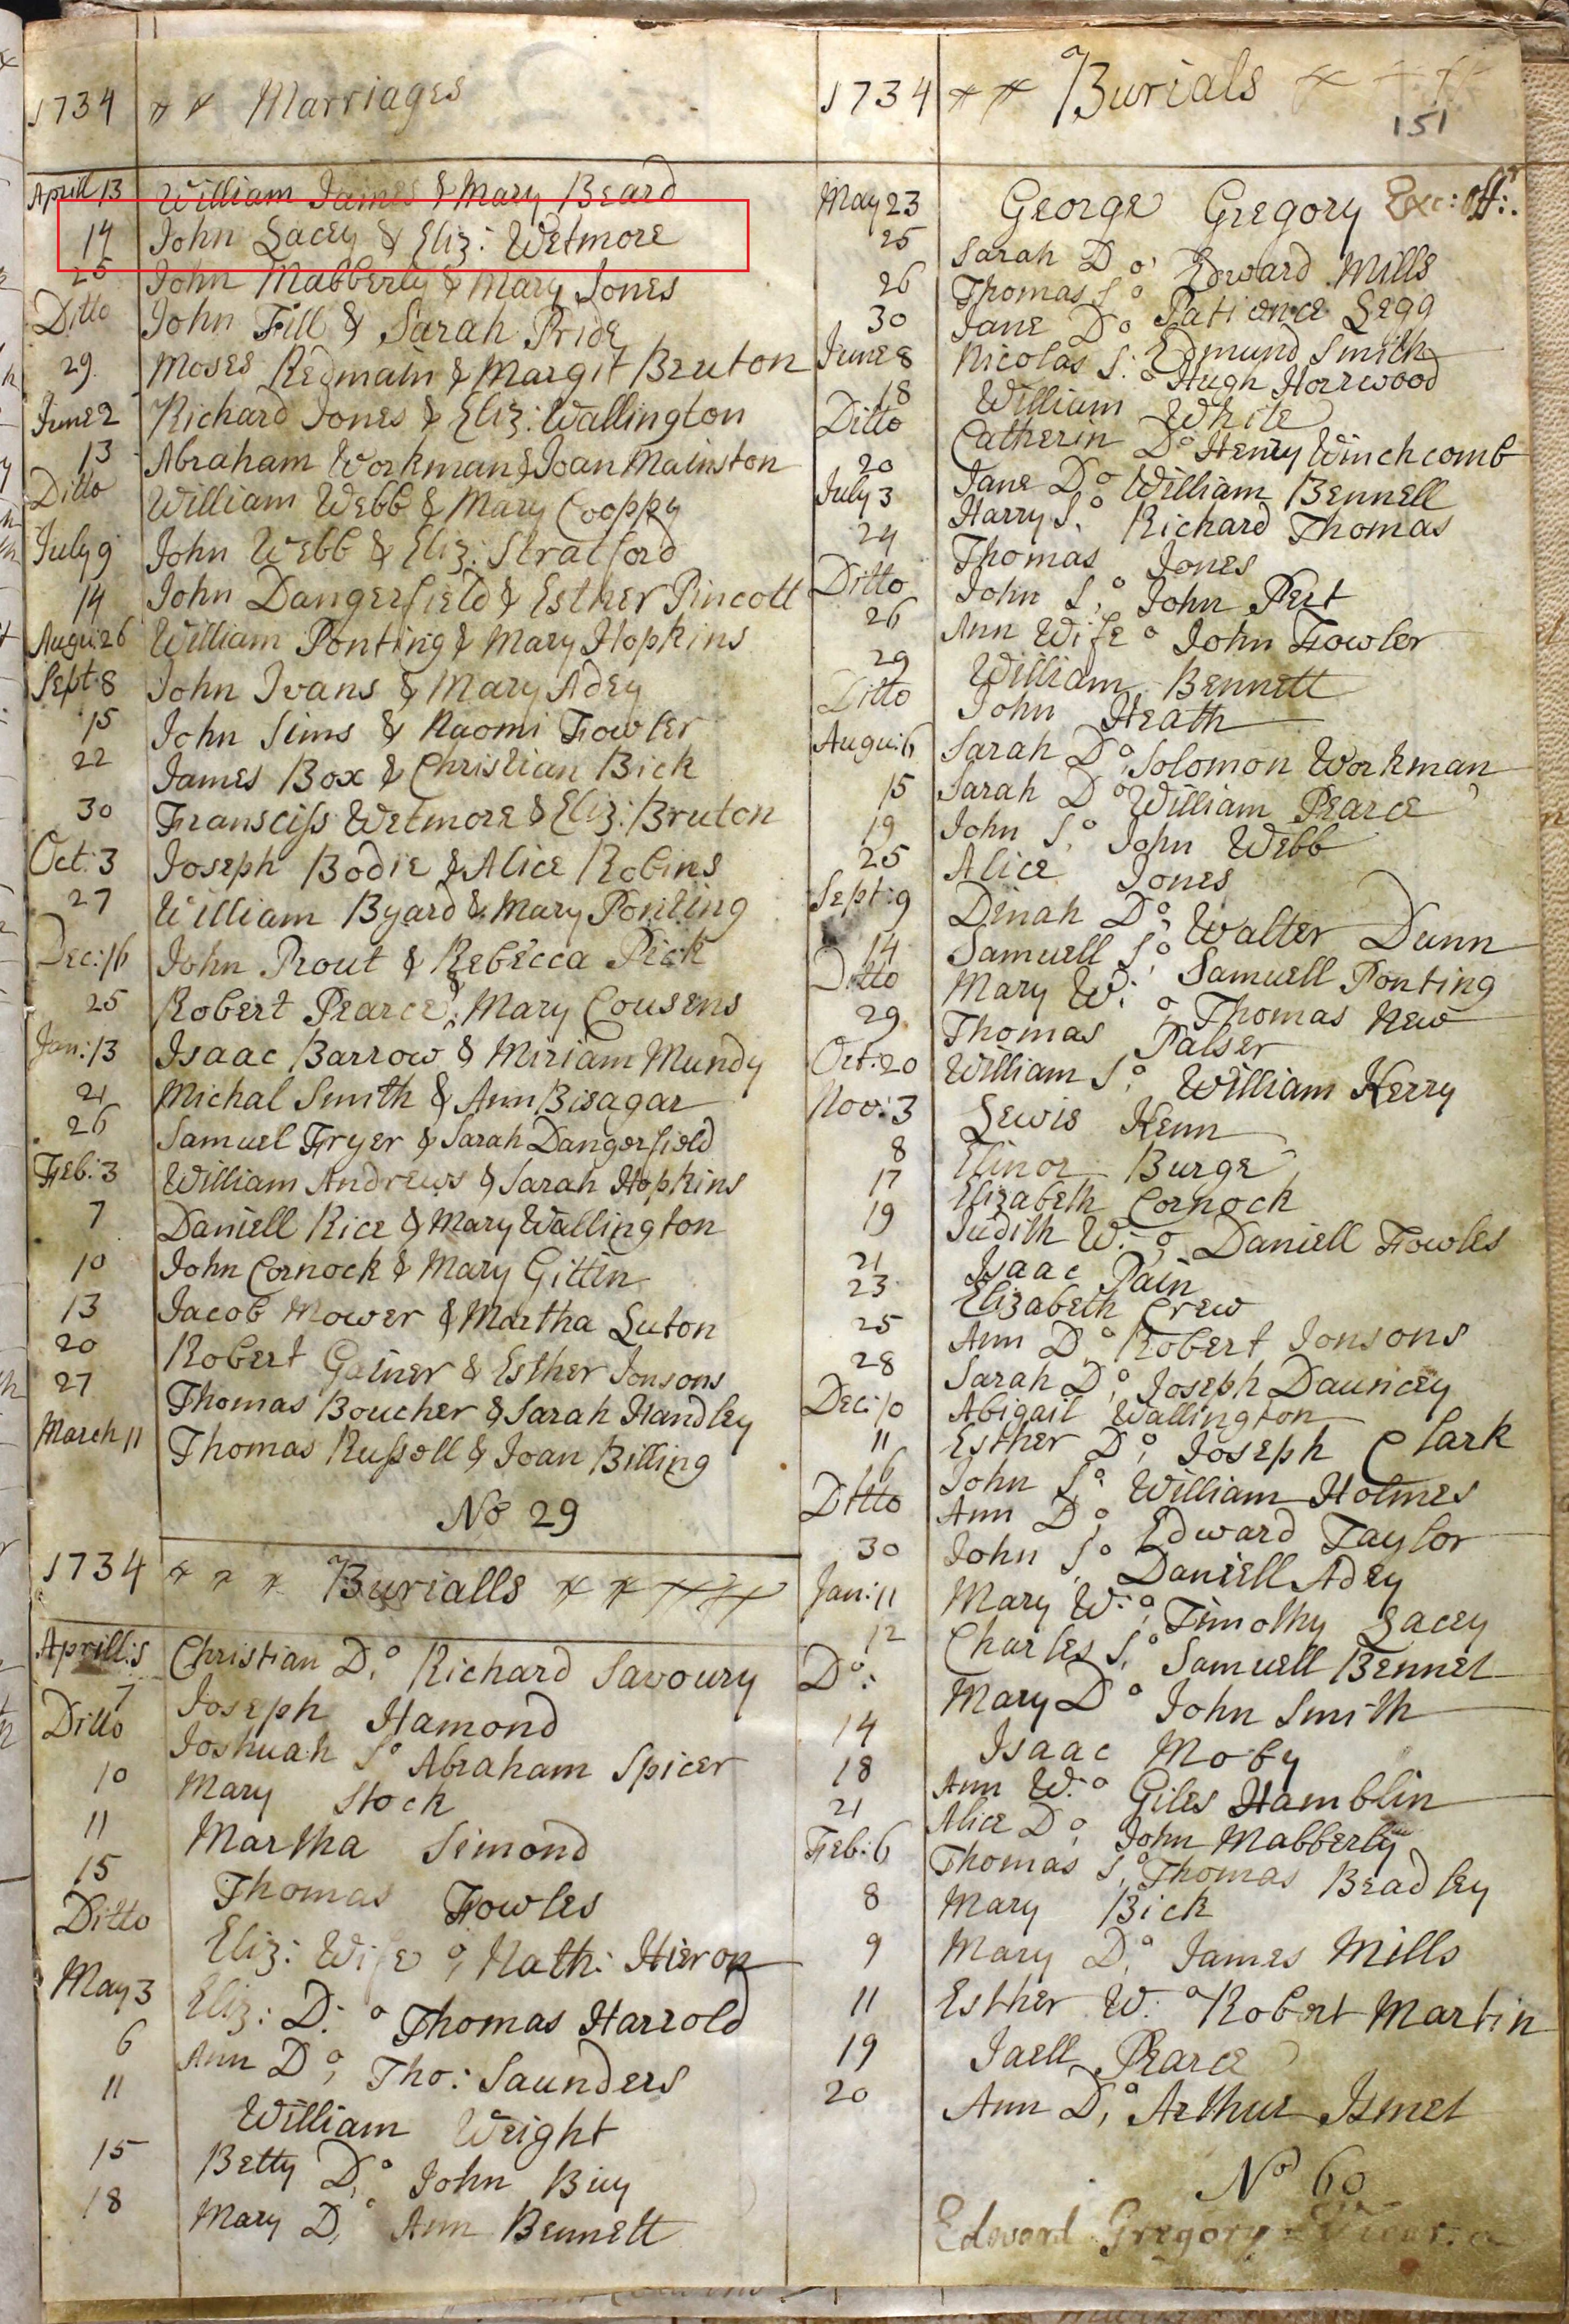 1734 Marriages
Aprill 13 William James & Mary Beard
14 John Lacey & Eliz: Wetmore
25 John Mabberly & Mary Jones
Ditto John Fill & Sarah Pride
29. Moses Redmain & Margit Bruton
June 2 Richard Jones & Eliz: Wallington
13 Abraham Workman & Joan Mainston
Ditto William Webb & Mary Cooppy
July 9 John Webb & Eliz: Stratford
14 John Dangerfield & Esther Pincott
Augu: 26 William Ponting & Mary Hopkins
Sept: 8 John Ivans & Mary Adey
15 John Sims & Naomi Fowler
22 James Box & Christian Bick
30 Transciss Wetmore & Eliz: Bruton
Oct: 3 Joseph Bodie & Alice Robins
27 William Byard & Mary Ponting
Dec: 16 John Prout & Rebecca Pick
25 Robert Pearce & Mary Cousens
Jan: 13 Isaac Barrow & Miriam Mundy
21 Michal Smith & Ann Bisagar
26 Samuel Fryer & Sarah Dangerfield
Feb: 3 William Andrews & Sarah Hopkins
7 Daniell Rice & Mary Wallington
10 John Cornock & Mary Gittin
13 Jacob Mower & Martha Luton
20 Robert Gainer & Esther Jonsons
27 Thomas Boucher & Sarah Handley
March 11 Thomas Russell & Joan Billing
No 29
1734 Burialls
Aprill: 5 Christian D: o Richard Savoury
7 Joseph Hamond
Ditto Joshuah S o Abraham Spicer
10 Mary Stock
11 Martha Simond
15 Thomas Fowles
Ditto Eliz: Wife o, Nath: Hieron
May 3 Eliz: D: o Thomas Harrold
6 Ann D o, Tho: Saunders
11 William Wright
15 Betty D, o John Biuy
18 Mary D, o Ann Bennett
1734 Burials
151
May 23 George Gregory Exc: off:r
25 Sarah D o, Edward Mills
26 Thomas S o Patience Legg
30 Jane D o Edmund Smith
June 8 Nicolas S: o Hugh Horrwood
18 William White
Ditto Catherin D o Henry Winchcomb
20 Jane D o William Bennell
July 3 Harry S, o Richard Thomas
24 Thomas Jones
Ditto John S, o John Pert
26 Ann Wife o John Fowler
29 William Bennett
Ditto John Heath
Augu: 6 Sarah D o, Solomon Workman
15 Sarah D o William Pearce
19 John S, o John Webb
25 Alice Jones
Sept: 9 Dinah D o, Walter Dunn
14 Samuell S o, Samuell Ponting
Ditto Mary W: o, Thomas New
29 Thomas Palser
Oct: 20 William S o, William Herry
Nov: 3 Lewis Kenn
8 Elinor Burge
17 Elizabeth Cornock
19 Judith W: o, Daniell Fowles
21 Isaac Pain
23 Elizabeth Crew
25 Ann D, o Robert Jonsons
28 Sarah D, o Joseph Dauncey
Dec: 10 Abigail Wallington
11 Esther D o, Joseph Clark
16 John S o, William Holmes
Ditto Ann D o, Edward Taylor
30 John S, o Daniell Adey
Jan: 11 Mary W: o, Timothy Lacey
12 Charles S, o Samuell Bennet
Do: Mary D o John Smith
14 Isaac Moby
18 Ann W: o Giles Hamblin
21 Alice D o, John Mabberly
Feb: 6 Thomas S, o Thomas Bradley
8 Mary Bick
9 Mary D, o James Mills
11 Esther W: o Robert Martin
19 Jaell Pearce
20 Ann D, o Arthur Ismel
No 60
Edward Gregory